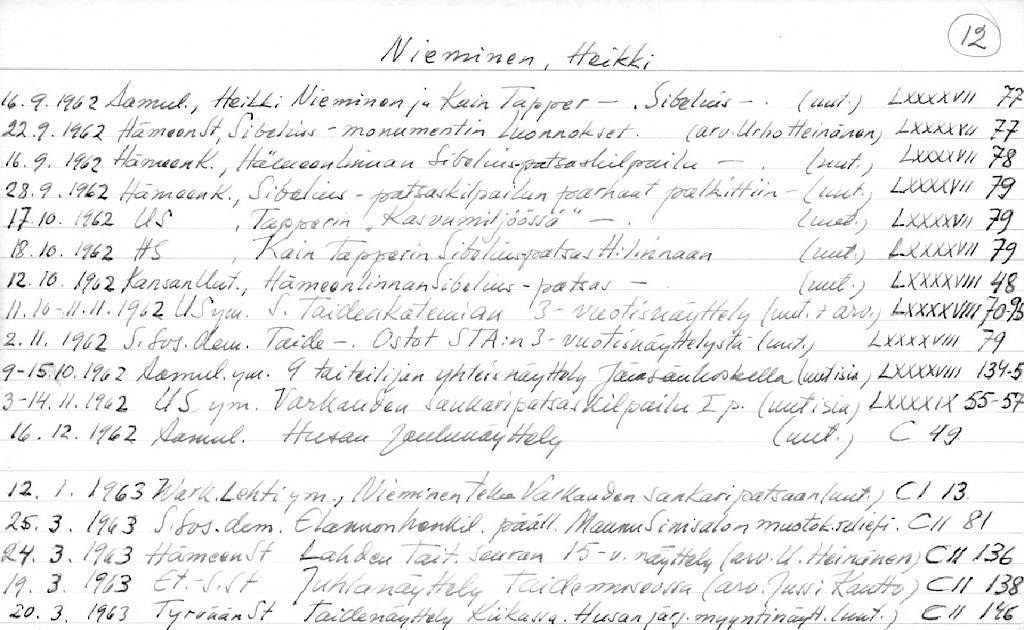 12
Nieminen, Heikki
16.9.1962 Aamul., Heikki Nieminen ja Kain Tapper – "Sibelius" –. (uut.) LXXXXVII 77
22.9.1962 HämeenSt, Sibelius-monumentin luonnokset. (arv. Urho Heinänen) LXXXXVII 77
16.9.1962 HämeenK., Hämeenlinnan Sibelius-patsaskilpailu –. (uut.) LXXXXVII 78
28.9.1962 HämeenK., Sibelius-patsaskilpailun parhaat palkittiin – (uut.) LXXXXVII 79
17.10.1962 US, Tapperin "Kasvumiljöössä" –. (uut.) LXXXXVII 79
18.10.1962 HS, Kain Tapperin Sibeliuspatsas H:linnaan (uut.) LXXXXVII 79
12.10.1962 KansanUut., Hämeenlinnan Sibelius-patsas –. (uut.) LXXXXVIII 48
11.10-11.11.1962 US ym. S. Taideakatemian 3-vuotisnäyttely (uut. + arv.) LXXXXVIII 70-96
2.11.1962 S.Sos.dem. Taide –. Ostot STA:n 3-vuotisnäyttelystä (uut.) LXXXXVIII 79
9-15.10.1962 Aamul. ym. 9 taiteilijan yhteisnäyttely Jämsänkoskella (uutisia) LXXXXVIII 134-5
3-14.11.1962 US ym. Varkauden sankaripatsaskilpailu I p. (uutisia) LXXXXIX 55-57
16.12.1962 Aamul. Husan joulunäyttely (uut.) C 49
12.1.1963 Wark.Lehti ym., Nieminen tekee Varkauden sankaripatsaan (uut.) CI 13.
25.3.1963 S.Sos.dem. Elannon henkil. pääll. Maunu Sinisalon muotok.reliefi. CII 81
24.3.1963 HämeenSt Lahden Tait. Seuran 15-v. näyttely (arv. U. Heinänen) CII 136
19.3.1963 Et.-S.St Juhlanäyttely taidemuseossa (arv. Jussi Kautto) CII 138
20.3.1963 TyrväänSt Taidenäyttely Kiikassa. Husan järj. myyntinäytt. (uut.) CII 146